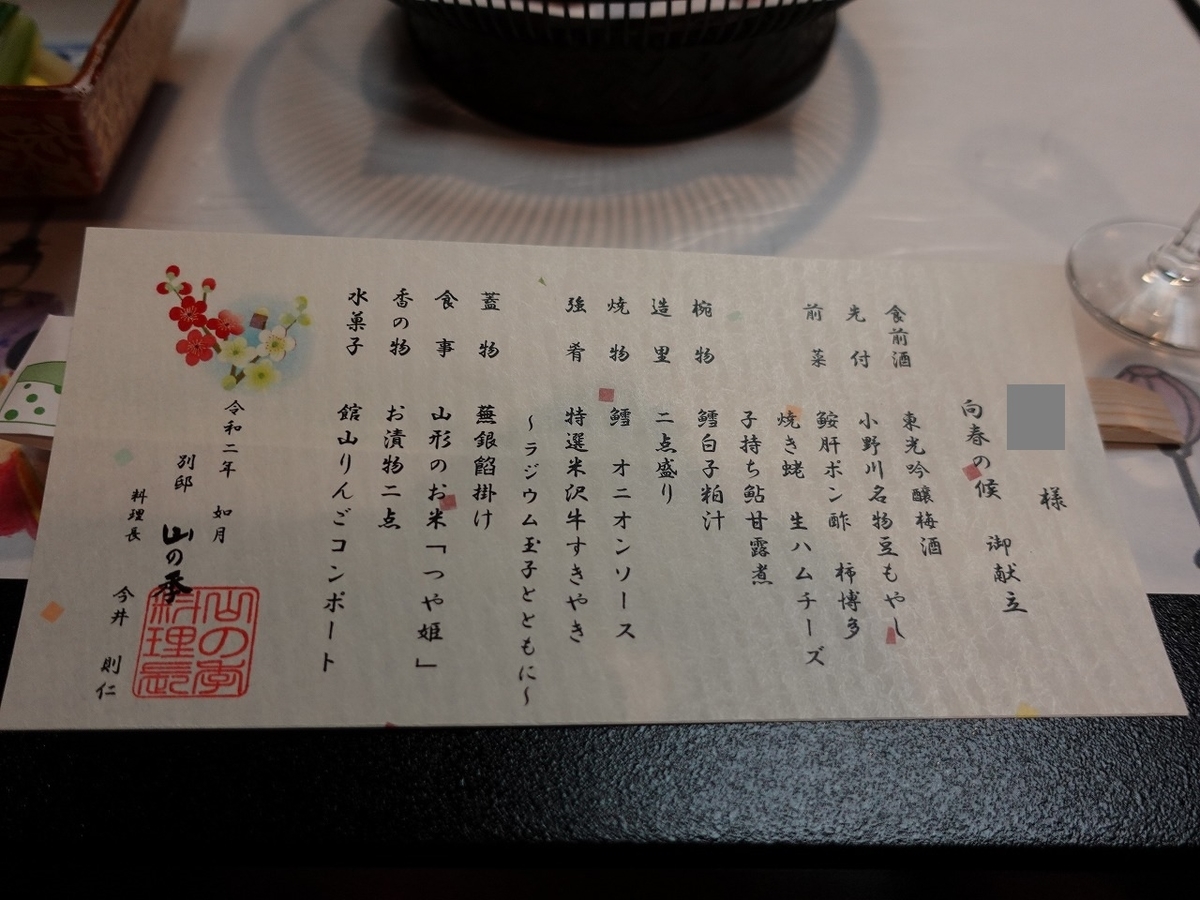 様
向春の候 御献立
食前酒 東光吟醸梅酒
先付 小野川名物豆もやし
前菜 鮟肝ポン酢 柿博多
焼き蛯 生ハムチーズ
子持ち鮎甘露煮
椀物 鱈白子粕汁
造里 二点盛り
焼物 鱈 オニオンソース
強肴 特選米沢牛すきやき
～ラジウム玉子とともに～
蓋物 蕪銀餡掛け
食事 山形のお米「つや姫」
香の物 お漬物二点
水菓子 館山りんごコンポート
令和二年 如月
別邸 山の季
料理長 今井 則仁
山の季
料理長